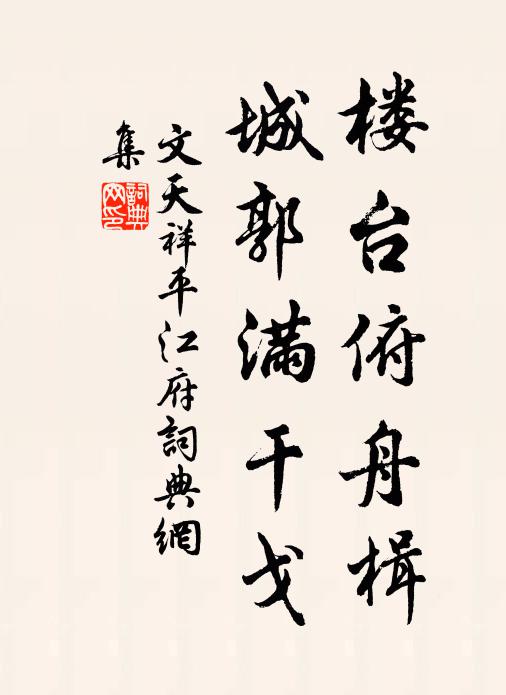 楼台俯舟楫
城郭满干戈
文天祥平江府詞典網
集
詞典
网印